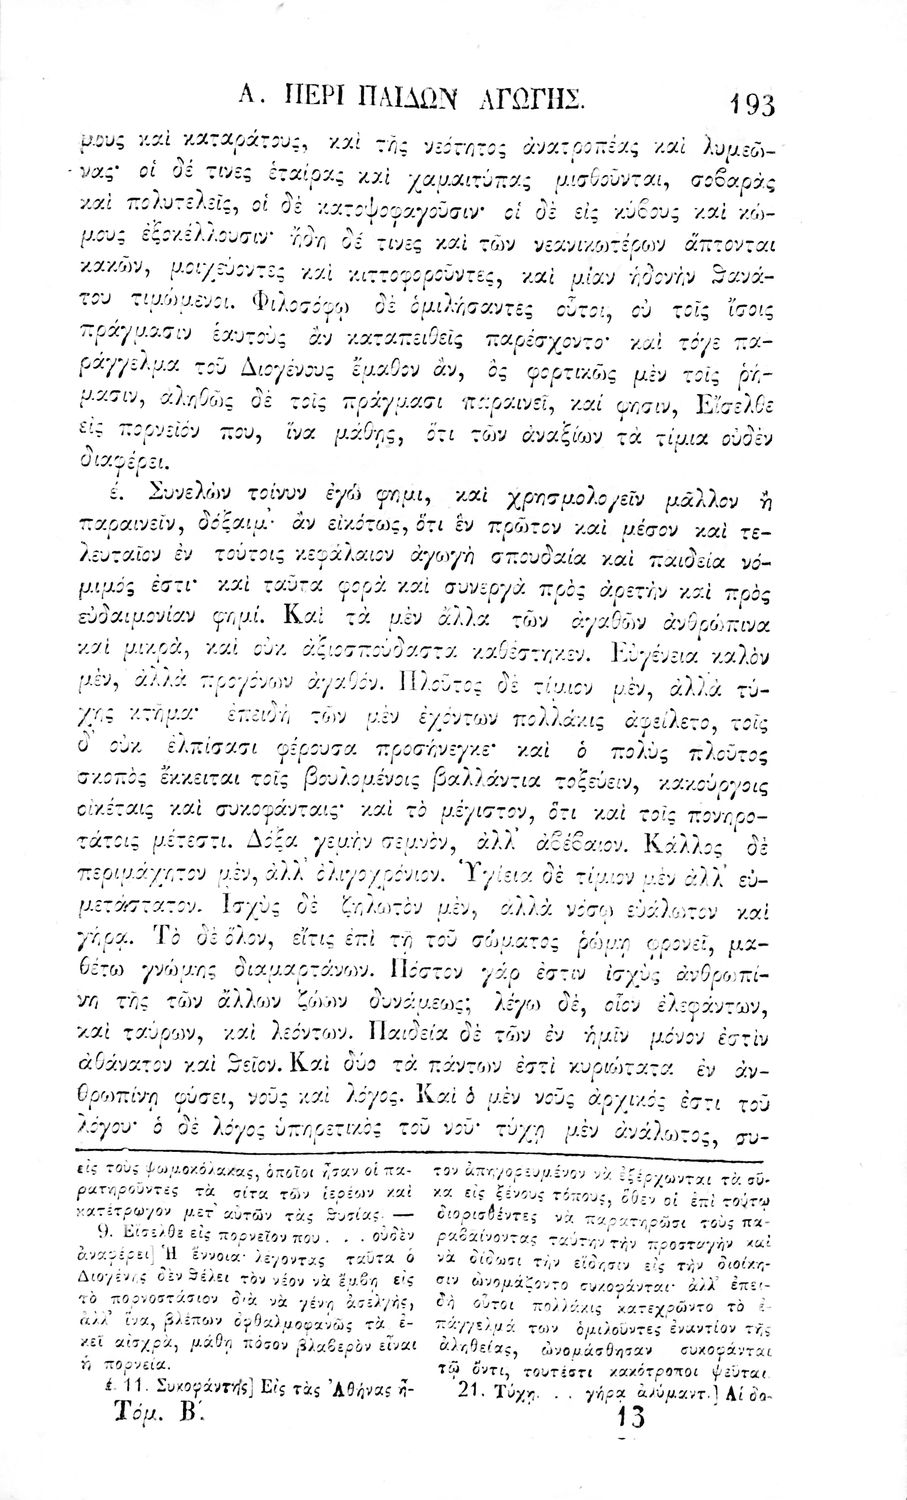 Α. ΠΕΡΙ ΠΑΙΔΩΝ ΑΓΩΓΗΣ. 193
μους καὶ καταράτους, καὶ τῆς νεότητος ἀνατροπέας καὶ λυμεῶ-
νας· οἱ δέ τινες ἑταίρας καὶ χαμαιτύπας μισθοῦνται, σοβαρὰς
καὶ πολυτελεῖς, οἱ δὲ κατοψοφαγοῦσιν· οἱ δὲ εἰς κύβους καὶ κώ-
μους ἐξοκέλλουσιν· ἤδη δέ τινες καὶ τῶν νεανικωτέρων ἅπτονται
κακῶν, μοιχεύοντες καὶ κιττοφοροῦντες, καὶ μίαν ἡδονὴν θανά-
του τιμώμενοι. Φιλοσόφῳ δὲ ὁμιλήσαντες οὗτοι, οὐ τοῖς ἴσοις
πράγμασιν ἑαυτοὺς ἂν καταπειθεῖς παρέσχοντο· καὶ τόγε πα-
ράγγελμα τοῦ Διογένους ἔμαθον ἂν, ὃς φορτικῶς μὲν τοῖς ῥή-
μασιν, ἀληθῶς δὲ τοῖς πράγμασι παραινεῖ, καί φησιν, Εἴσελθε
εἰς πορνεῖόν που, ἵνα μάθῃς, ὅτι τῶν ἀναξίων τὰ τίμια οὐδὲν
διαφέρει.
έ. Συνελὼν τοίνυν ἐγώ φημι, καὶ χρησμολογεῖν μᾶλλον ἢ
παραινεῖν, δόξαιμ᾽ ἂν εἰκότως, ὅτι ἓν πρῶτον καὶ μέσον καὶ τε-
λευταῖον ἐν τούτοις κεφάλαιον ἀγωγὴ σπουδαία καὶ παιδεία νό-
μιμός ἐστι· καὶ ταῦτα φορὰ καὶ συνεργὰ πρὸς ἀρετὴν καὶ πρὸς
εὐδαιμονίαν φημί. Καὶ τὰ μὲν ἄλλα τῶν ἀγαθῶν ἀνθρώπινα
καὶ μικρὰ, καὶ οὐκ ἀξιοσπούδαστα καθέστηκεν. Εὐγένεια καλὸν
μὲν, ἀλλὰ προγόνων ἀγαθόν. Πλοῦτος δὲ τίμιον μὲν, ἀλλὰ τύ-
χης κτῆμα· ἐπειδὴ τῶν μὲν ἐχόντων πολλάκις ἀφείλετο, τοῖς
δ᾽ οὐκ ἐλπίσασι φέρουσα προσήνεγκε· καὶ ὁ πολὺς πλοῦτος
σκοπὸς ἔκκειται τοῖς βουλομένοις βαλλάντια τοξεύειν, κακούργοις
οἰκέταις καὶ συκοφάνταις· καὶ τὸ μέγιστον, ὅτι καὶ τοῖς πονηρο-
τάτοις μέτεστι. Δόξα γεμὴν σεμνὸν, ἀλλ᾽ ἀβέβαιον. Κάλλος δὲ
περιμάχητον μὲν, ἀλλ᾽ ὀλιγοχρόνιον. Ὑγίεια δὲ τίμιον μὲν ἀλλ᾽ εὐ-
μετάστατον. Ἰσχὺς δὲ ζηλωτὸν μὲν, ἀλλὰ νόσῳ εὐάλωτον καὶ
γήρᾳ. Τὸ δὲ ὅλον, εἴτις ἐπὶ τῇ τοῦ σώματος ῥώμῃ φρονεῖ, μα-
θέτω γνώμης διαμαρτάνων. Πόστον γάρ ἐστιν ἰσχὺς ἀνθρωπί-
νη τῆς τῶν ἄλλων ζώων δυνάμεως; λέγω δὲ, οἷον ἐλεφάντων,
καὶ ταύρων, καὶ λεόντων. Παιδεία δὲ τῶν ἐν ἡμῖν μόνον ἐστὶν
ἀθάνατον καὶ θεῖον. Καὶ δύο τὰ πάντων ἐστὶ κυριώτατα ἐν ἀν-
θρωπίνῃ φύσει, νοῦς καὶ λόγος. Καὶ ὁ μὲν νοῦς ἀρχικός ἐστι τοῦ
λόγου· ὁ δὲ λόγος ὑπηρετικὸς τοῦ νοῦ· τύχῃ μὲν ἀνάλωτος, συ-
εἰς τοὺς ψωμοκόλακας, ὁποῖοι ἦσαν οἱ πα-
ρατηροῦντες τὰ σίτα τῶν ἱερέων καὶ
κατέτρωγον μετ᾽ αὐτῶν τὰς θυσίας. —
9. Εἴσελθε εἰς πορνεῖον που . . . οὐδὲν
ἀναφέρει] Ἡ ἔννοια· λέγοντας ταῦτα ὁ
Διογένης δὲν θέλει τὸν νέον νὰ ἔμβῃ εἰς
τὸ πορνοστάσιον διὰ νὰ γένῃ ἀσελγὴς,
ἀλλ᾽ ἵνα, βλέπων ὀφθαλμοφανῶς τὰ ἐ-
κεῖ αἰσχρὰ, μάθῃ πόσον βλαβερὸν εἶναι
ἡ πορνεία.
έ. 11. Συκοφάντης] Εἰς τὰς Ἀθήνας ἦ-
τον ἀπηγορευμένον νὰ ἐξέρχωνται τὰ σῦ-
κα εἰς ξένους τόπους, ὅθεν οἱ ἐπὶ τούτῳ
διορισθέντες νὰ παρατηρῶσι τοὺς πα-
ραβαίνοντας ταύτην τὴν προσταγὴν καὶ
νὰ δίδωσι τὴν εἴδησιν εἰς τὴν διοίκη-
σιν ὠνομάζοντο συκοφάνται· ἀλλ᾽ ἐπει-
δὴ οὗτοι πολλάκις κατεχρῶντο τὸ ἐ-
πάγγελμά των ὁμιλοῦντες ἐναντίον τῆς
ἀληθείας, ὠνομάσθησαν συκοφάνται
τῷ ὄντι, τουτέστι κακότροποι ψεῦται.
21. Τύχῃ. . . γήρᾳ ἀλύμαντ.] Αἱ δο-
Τόμ. Β΄. 13